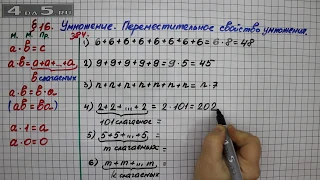 4 ДЛЯ 5.РУ
§16. Умножение. Переместительное свойство умножения.
М. М. Пр.
384.
a·b=c
a·b=a+a+...+a
b слагаемых
a·b=b·a
(ab=ba)
a·1=a
a·0=0
1) 6+6+6+6+6+6+6+6=6·8=48
2) 9+9+9+9+9=9·5=45
3) n+n+n+n+n+n+n=n·7
4) 2+2+...+2=2·101=202
101 слагаемое
5) 5+5+...+5,
m слагаемых
6) m+m+...m,
k слагаемых